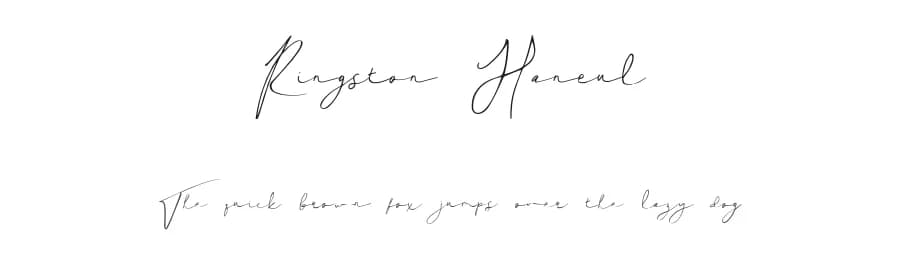 Ringston Haneul
The quick brown fox jumps over the lazy dog